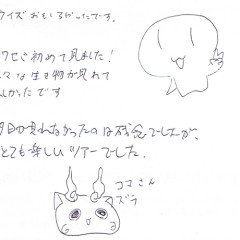 クイズおもしろかったです。
クセで初めて見ました！
な生き物が見れて
しかったです
が見れなかったのは残念でしたが、
とても楽しいツアーでした。
コマさん
ズラ